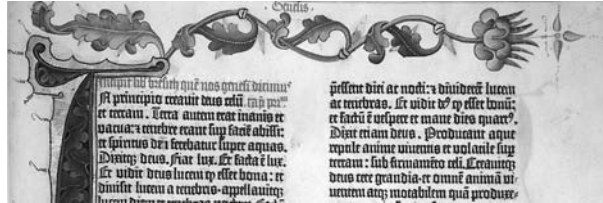 Genesis.
Incipit lib bresith quē nos genesi dicimꝰ
N principio creavit deus celū cap̄ prī
et terram. Terra autem erat inanis et
vacua: et tenebre erant sup faciē abissi:
et spiritus dn̄i ferebatur super aquas.
Dixitqꝫ deus. Fiat lux. Et facta ē lux.
Et vidit deus lucem qꝫ esset bona: et
divisit lucem a tenebris·appellavitqꝫ
lucem diem et tenebras
p̄essent diei ac nocti: et dividerēt lucem
ac tenebras. Et vidit deꝰ qꝫ esset bonū:
et factū ē vespere et mane dies quartꝰ.
Dixit etiam deus. Producant aque
reptile anime viventis et volatile sup
terram: sub firmamēto celi. Creavitqꝫ
deus cete grandia·et omnē animā vi-
ventem atqꝫ motabilem quā produxe-